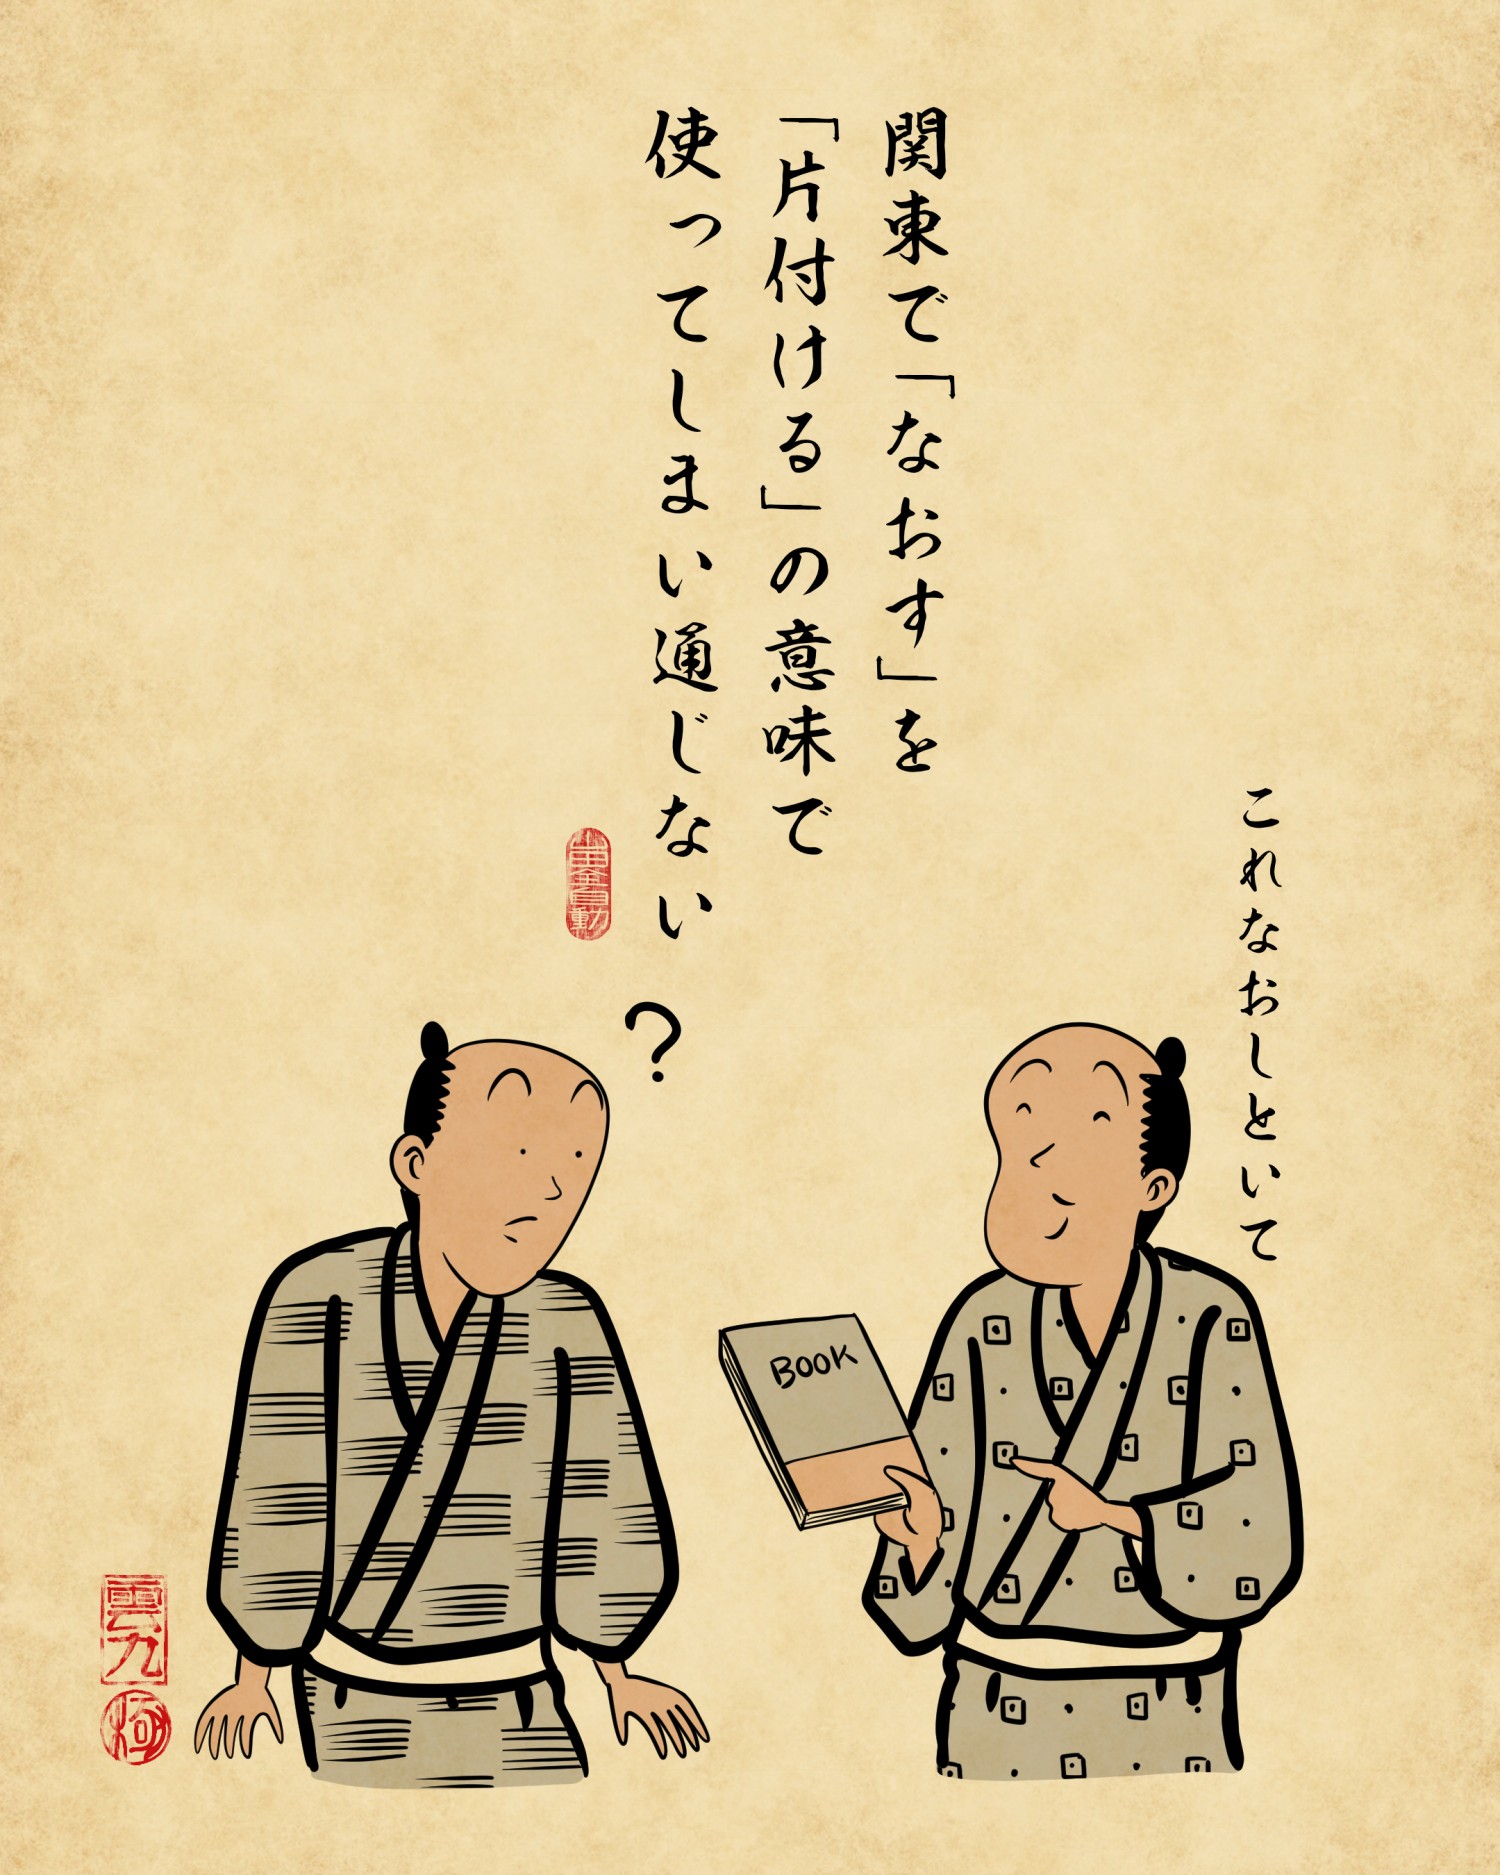 関東で「なおす」を
「片付ける」の意味で
使ってしまい通じない
これなおしといて
?
BOOK
山田全自動
雲九
極